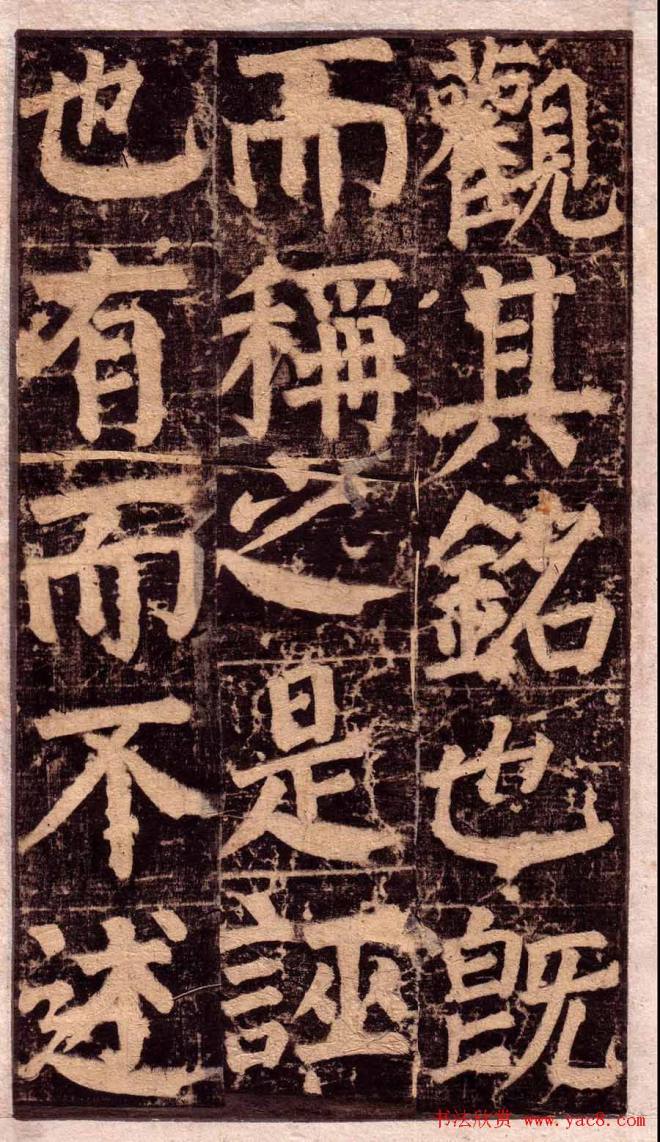 觀其銘也既
而稱之是誣
也有而不述
书法欣赏 www.yac8.com